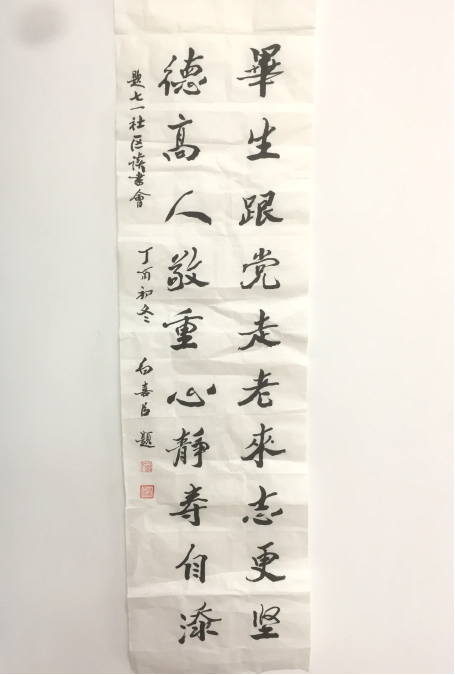 畢生跟党走老來志更坚
德高人敬重心静寿自添
题七一社区读书會
丁酉初冬 白喜臣題